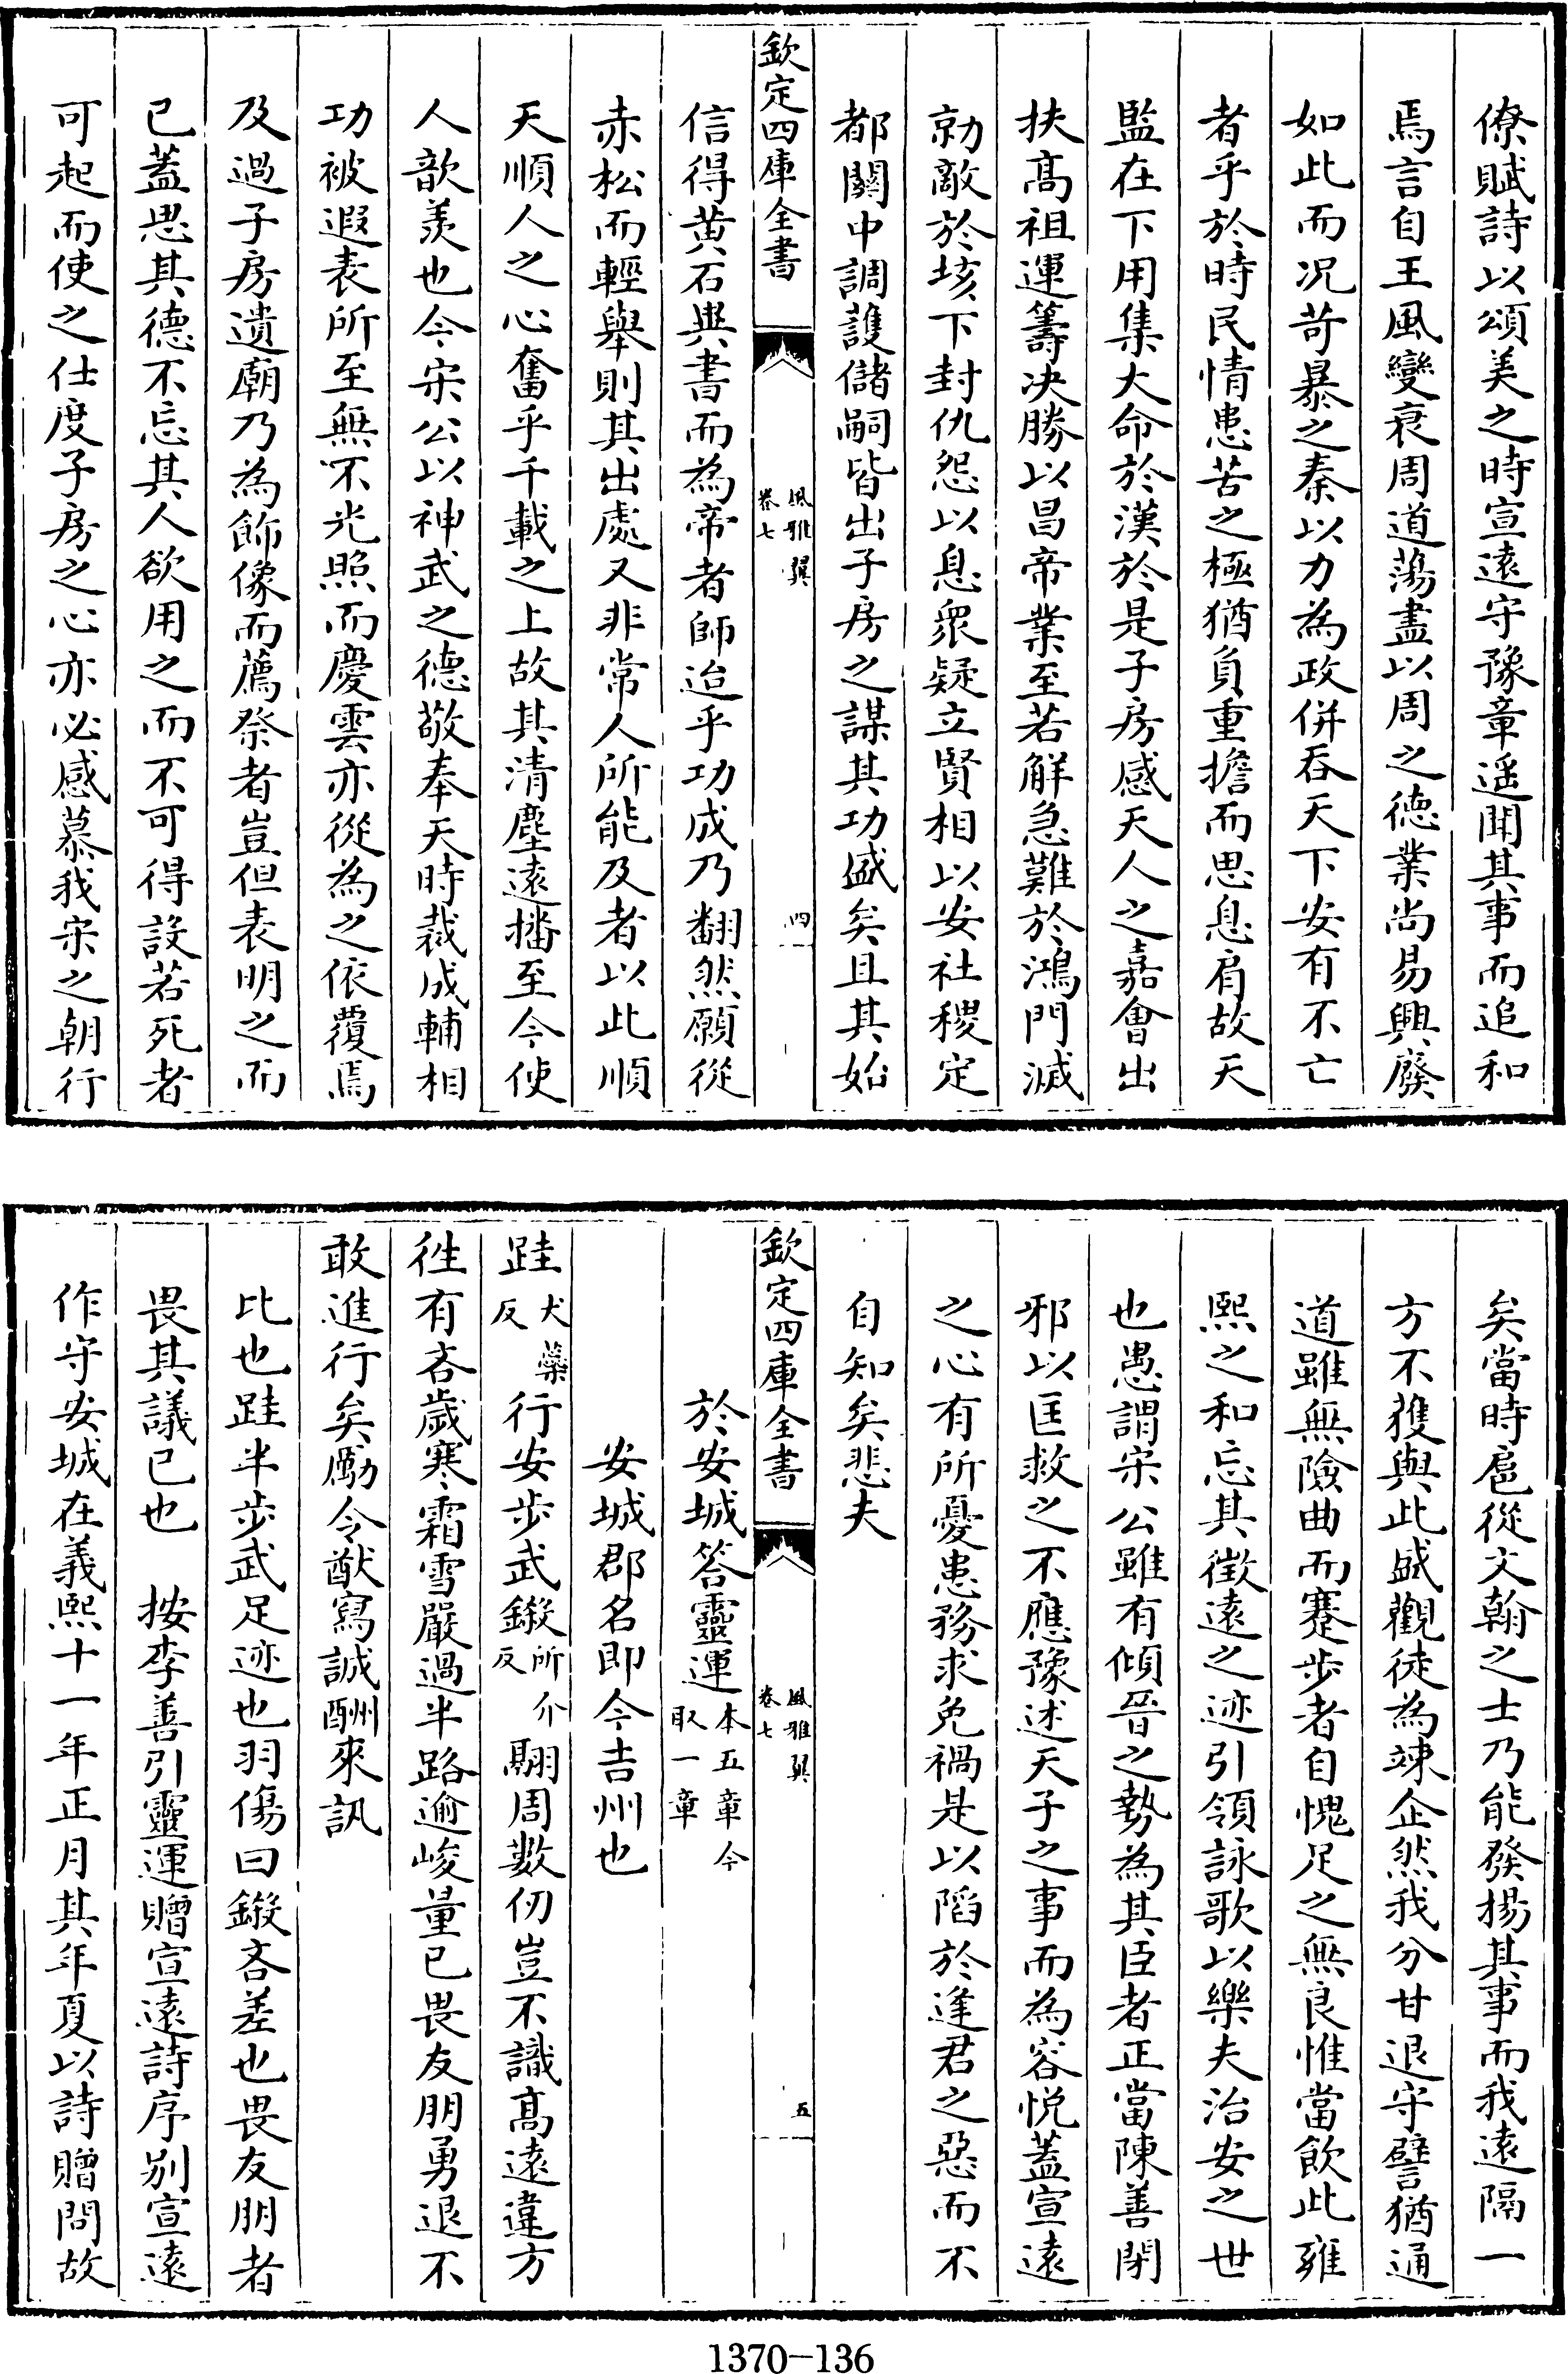 僚賦詩以頌美之時宣遠守豫章遥聞其事而追和
焉言自王風變衰周道蕩盡以周之德業尚易興廢
如此而况苛暴之秦以力為政併吞天下安有不亡
者乎於時民情患苦之極猶負重擔而思息肩故天
監在下用集大命於漢於是子房感天人之嘉會出
扶髙祖運籌决勝以昌帝業至若解急難於鴻門滅
勍敵於垓下封仇怨以息衆疑立賢相以安社稷定
都關中調護儲嗣皆出子房之謀其功盛矣且其始
欽定四庫全書
風雅翼
卷七
四
信得黄石與書而為帝者師迨乎功成乃翻然願從
赤松而輕舉則其出處又非常人所能及者以此順
天順人之心奮乎千載之上故其清塵遠播至今使
人歆羨也今宋公以神武之德敬奉天時裁成輔相
功被遐表所至無不光照而慶雲亦從為之依覆焉
及過子房遺廟乃為飾像而薦祭者豈但表明之而
已蓋思其德不忘其人欲用之而不可得設若死者
可起而使之仕度子房之心亦必感慕我宋之朝行
矣當時扈從文翰之士乃能發揚其事而我遠隔一
方不獲與此盛觀徒為竦企然我分甘退守譬猶通
道雖無險曲而蹇步者自愧足之無良惟當飲此雍
熙之和忘其徴遠之迹引領詠歌以樂夫治安之世
也愚謂宋公雖有傾晉之勢為其臣者正當陳善閉
邪以匡救之不應豫述天子之事而為容悦蓋宣遠
之心有所憂患務求免禍是以陷於逢君之惡而不
自知矣悲夫
欽定四庫全書
風雅翼
卷七
五
於安城答靈運本五章今取一章
安城郡名即今吉州也
跬犬蘂反行安步武鎩所介反翮周數仞豈不識髙遠違方
徃有吝歲寒霜雪嚴過半路逾峻量已畏友朋勇退不
敢進行矣勵令猷寫誠酬來訊
比也跬半步武足迹也羽傷曰鎩吝差也畏友朋者
畏其議已也　按李善引靈運贈宣遠詩序别宣遠
作守安城在義熙十一年正月其年夏以詩贈問故
1370-136